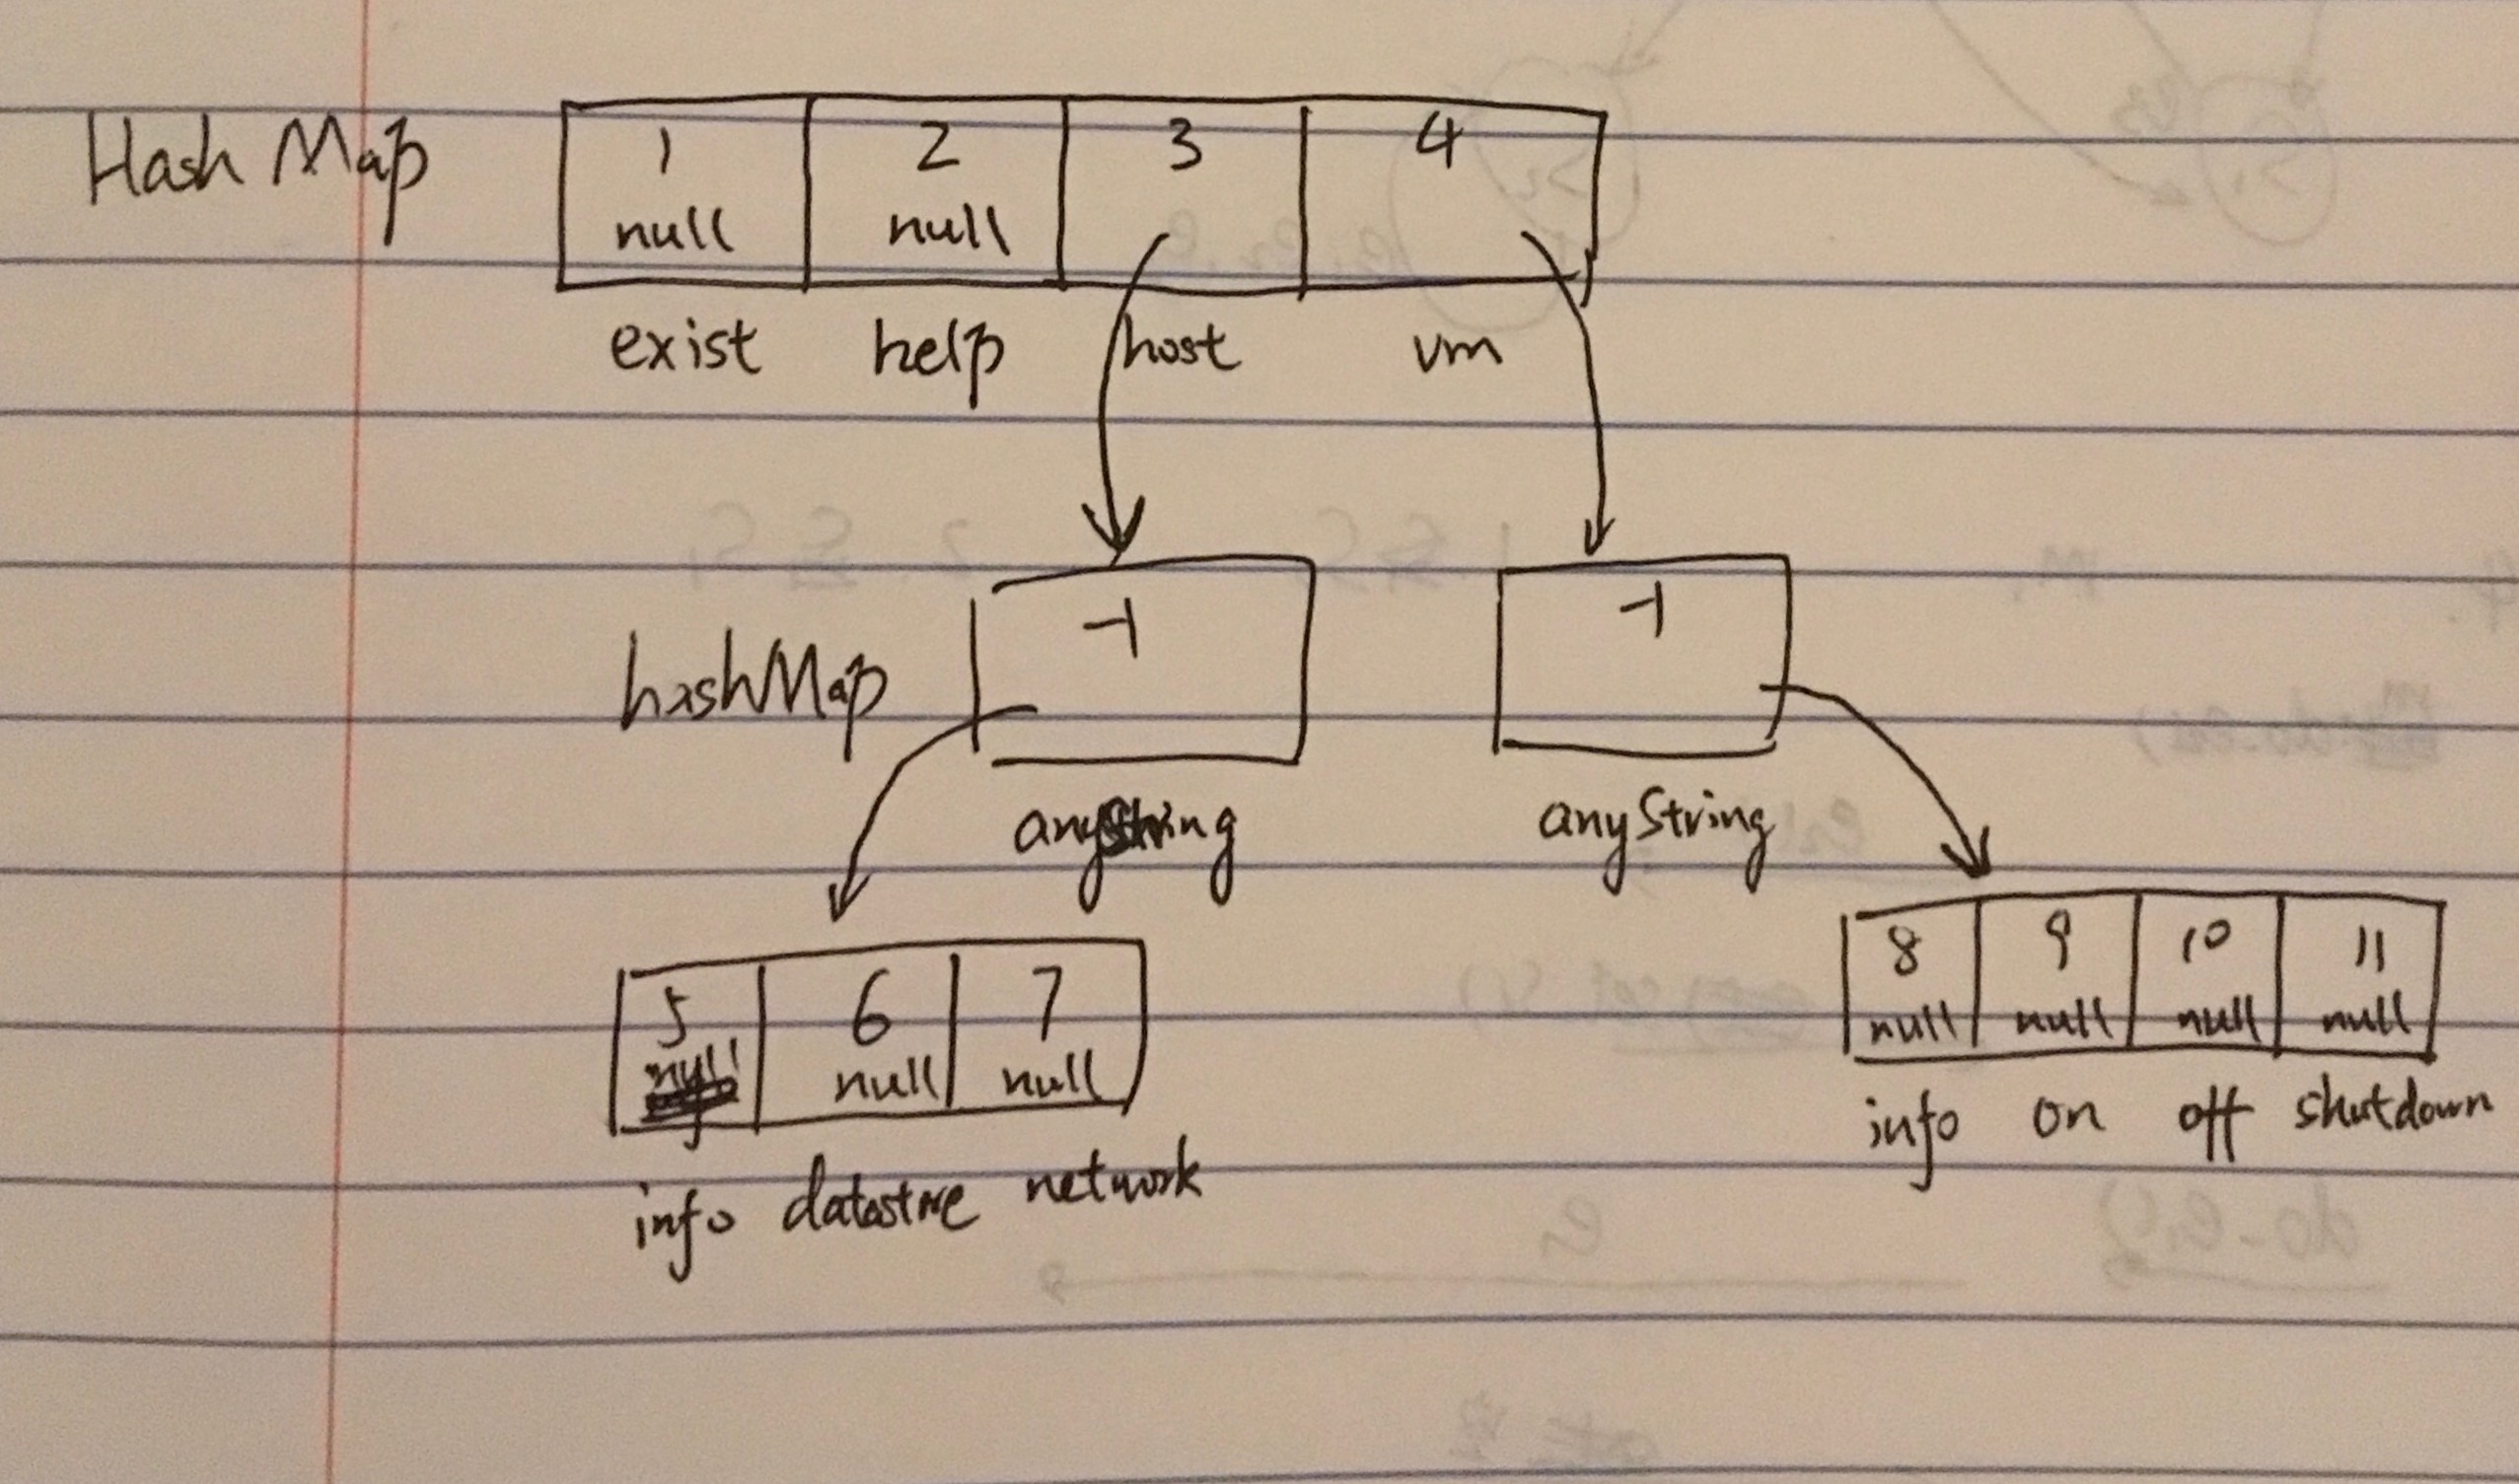 Hash Map
1 2 3 4
null null
exist help host vm
-1 -1
hashMap
anyString anyString
5 6 7
null null null
info datastore network
8 9 10 11
null null null null
info on off shutdown